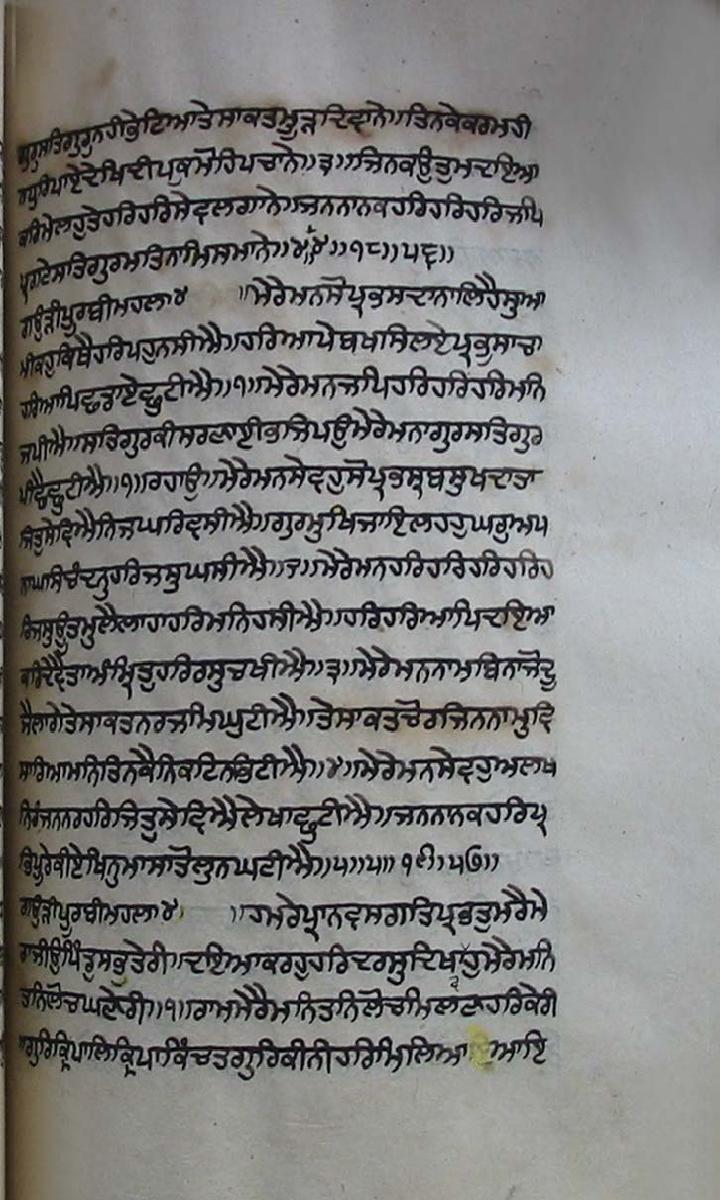 ਗੁਰੁਸਤਿਗੁਰੁਨਹੀਭੇਟਿਆਤੇਸਾਕਤਮੂੜਦਿਵਾਨੇ॥ਤਿਨਕੇਕਰਮਹੀ
ਣਧੁਰਿਪਾਏਦੇਖਿਦੀਪਕੁਮੋਹਿਪਚਾਨੇ॥੩॥ਜਿਨਕਉਤੁਮਦਇਆ
ਕਰਿਮੇਲਹੁਤੇਹਰਿਹਰਿਸੇਵਲਗਾਨੇ॥ਜਨਨਾਨਕਹਰਿਹਰਿਹਰਿਜਪਿ
ਪ੍ਰਗਟੇਸਤਿਗੁਰਮਤਿਨਾਮਿਸਮਾਨੇ॥੪॥੪॥੧੮॥੫੬॥
ਗਉੜੀਪੂਰਬੀਮਹਲਾ੪ ॥ਮੇਰੇਮਨਸੋਪ੍ਰਭਸਦਾਨਾਲਿਹੈਸੁਆ
ਮੀਕਹੁਕਿਥੈਹਰਿਪਹੁਨਸੀਐ॥ਹਰਿਆਪੇਬਖਸਿਲਏਪ੍ਰਭੁਸਾਚਾ
ਹਰਿਆਪਿਛਡਾਏਛੁਟੀਐ॥੧॥ਮੇਰੇਮਨਜਪਿਹਰਿਹਰਿਹਰਿਮਨਿ
ਜਪੀਐ॥ਸਤਿਗੁਰਕੀਸਰਣਾਈਭਜਿਪਉਮੇਰੇਮਨਾਗੁਰਸਤਿਗੁਰ
ਪੀਛੈਛੁਟੀਐ॥੧॥ਰਹਾਉ॥ਮੇਰੇਮਨਸੇਵਹੁਸੋਪ੍ਰਭਸ੍ਰਬਸੁਖਦਾਤਾ
ਜਿਤੁਸੇਵਿਐਨਿਜਘਰਿਵਸੀਐ॥ਗੁਰਮੁਖਿਜਾਇਲਹਹੁਘਰੁਅਪ
ਨਾਘਸਿਚੰਦਨੁਹਰਿਜਸੁਘਸੀਐ॥੨॥ਮੇਰੇਮਨਹਰਿਹਰਿਹਰਿਹਰਿਹ
ਰਿਜਸੁਊਤਮੁਲੈਲਾਹਾਹਰਿਮਨਿਹਸੀਐ॥ਹਰਿਹਰਿਆਪਿਦਇਆ
ਕਰਿਦੇਵੈਤਾਅੰਮ੍ਰਿਤੁਹਰਿਰਸੁਚਖੀਐ॥੩॥ਮੇਰੇਮਨਨਾਮਬਿਨਾਜੋਦੂ
ਜੈਲਾਗੇਤੇਸਾਕਤਨਰਜਮਿਘੁਟੀਐ॥ਤੇਸਾਕਤਚੋਰਜਿਨਨਾਮੁਵਿ
ਸਾਰਿਆਮਨਿਤਿਨਕੈਨਿਕਟਿਨਭਿਟੀਐ॥੪॥ਮੇਰੇਮਨਸੇਵਹੁਅਲਖ
ਨਿਰੰਜਨਨਰਹਰਿਜਿਤੁਸੇਵਿਐਲੇਖਾਛੁਟੀਐ॥ਜਨਨਾਨਕਹਰਿਪ੍ਰ
ਭਿਪੂਰੇਕੀਏਖਿਨੁਮਾਸਾਤੋਲੁਨਘਟੀਐ॥੫॥੫॥੧੯॥੫੭॥
ਗਉੜੀਪੂਰਬੀਮਹਲਾ੪ ॥ਹਮਰੇਪ੍ਰਾਨਵਸਗਤਿਪ੍ਰਭਤੁਮਰੈਮੇ
ਰਾਜੀਉਪਿੰਡੁਸਭਤੇਰੀ॥ਦਇਆਕਰਹੁਹਰਿਦਰਸੁਦਿਖਾਹੁਮੇਰੈਮਨਿ
ਤਨਿਲੋਚਘਣੇਰੀ॥੧॥ਰਾਮਮੇਰੈਮਨਿਤਨਿਲੋਚਮਿਲਣਹਰਿਕੇਰੀ
॥ਗੁਰਿਕ੍ਰਿਪਾਲਿਕ੍ਰਿਪਾਕਿੰਚਤਗੁਰਿਕੀਨੀਹਰਿਮਿਲਿਆ ਆਇ